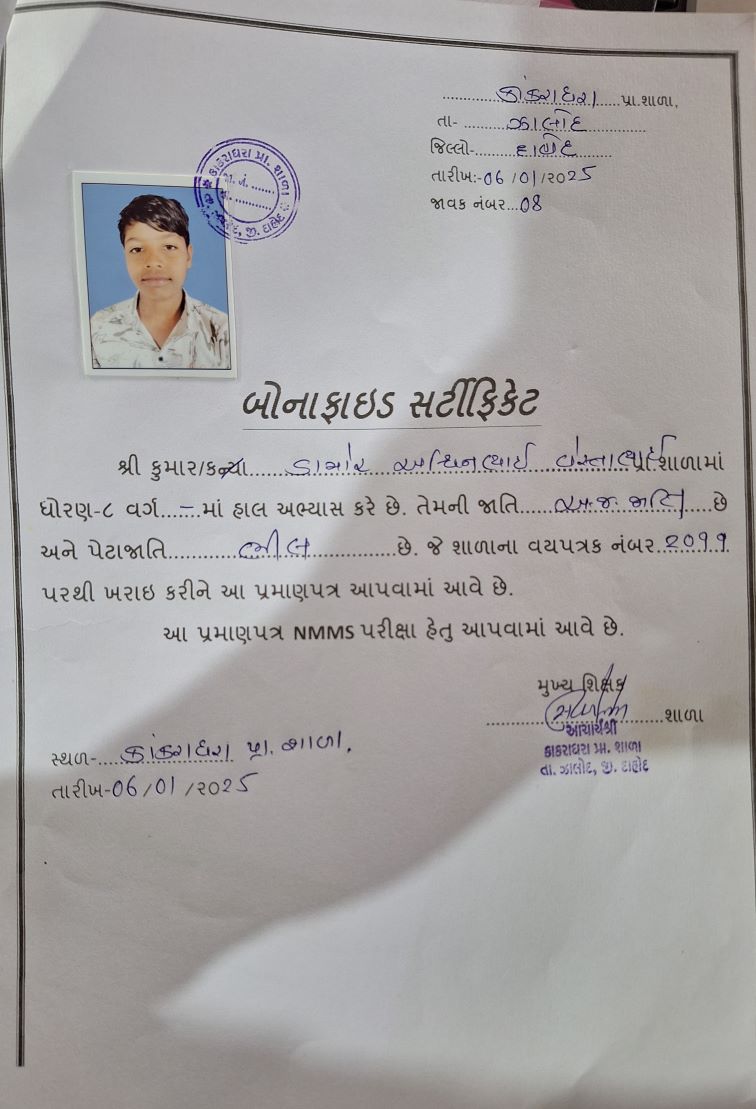 કાંકરાધરા પ્રા.શાળા,
તા- ઝાલોદ
જિલ્લો- દાહોદ
તારીખ:-06/01/2025
જાવક નંબર...08
કાકરાધરા પ્રા. શાળા
જા. નં.
તા. ઝાલોદ, જી. દાહોદ
બોનાફાઇડ સર્ટીફિકેટ
શ્રી કુમાર/કન્યા ડામોર અશ્વિનભાઈ વસ્તાભાઈ પ્રા શાળામાં
ધોરણ-૮ વર્ગ - માં હાલ અભ્યાસ કરે છે. તેમની જાતિ અ.જ.જાતિ છે
અને પેટાજાતિ ભીલ છે. જે શાળાના વયપત્રક નંબર ૨૦૧૧
પરથી ખરાઇ કરીને આ પ્રમાણપત્ર આપવામાં આવે છે.
આ પ્રમાણપત્ર NMMS પરીક્ષા હેતુ આપવામાં આવે છે.
મુખ્ય શિક્ષક
શાળા
આચાર્યશ્રી
કાકરાધરા પ્રા. શાળા
તા. ઝાલોદ, જી. દાહોદ
સ્થળ- કાંકરાધરા પ્રા. શાળા.
તારીખ-06/01/૨૦25